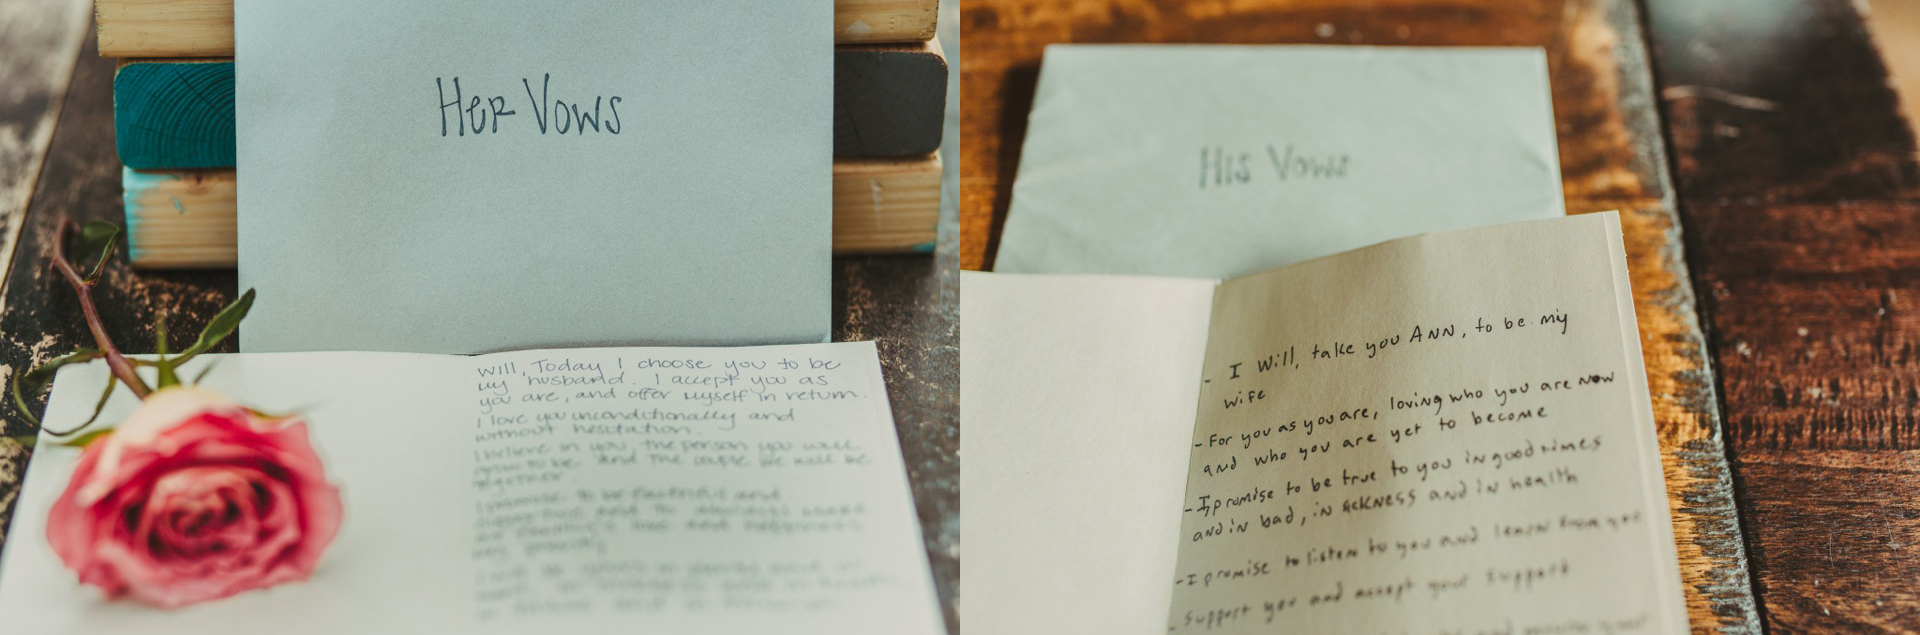 Her Vows
Will, Today I choose you to be
my husband. I accept you as
you are, and offer myself in return.
I love you unconditionally and
without hesitation.
I believe in you, the person you will
grow to be and the couple we will be
together.
I promise to be faithful and
supportive and to always make
our family's love and happiness
my priority.
His Vows
- I Will, take you ANN, to be my
wife
- For you as you are, loving who you are now
and who you are yet to become
- I promise to be true to you in good times
and in bad, in sickness and in health
- I promise to listen to you and learn from you
- Support you and accept your support